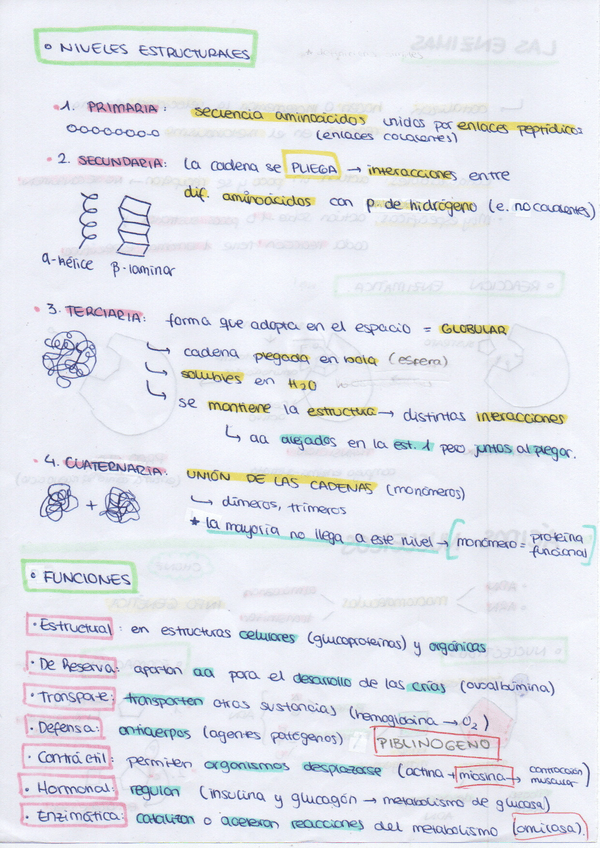 • NIVELES ESTRUCTURALES
• 1. PRIMARIA: secuencia aminoácidos unidos por enlaces peptídicos
(enlaces covalentes)
• 2. SECUNDARIA: la cadena se PLIEGA → interacciones entre
dif. aminoácidos con p. de hidrógeno (e. no covalentes)
α-hélice β-laminar
• 3. TERCIARIA: forma que adopta en el espacio = GLOBULAR
↳ cadena plegada en bola (esfera)
↳ solubles en H2O
↳ se mantiene la estructura → distintas interacciones
↳ aa alejados en la est. 1 pero juntos al plegar.
• 4. CUATERNARIA: UNIÓN DE LAS CADENAS (monómeros)
+
↳ dímeros, trímeros
* la mayoría no llega a este nivel → [monómero = proteína
funcional]
• FUNCIONES
• Estructural: en estructuras celulares (glucoproteínas) y orgánicas
• De Reserva: aportan aa para el desarrollo de las crías (ovoalbúmina)
• Transporte: transporten otras sustancias (hemoglobina → O2)
• Defensa: anticuerpos (agentes patógenos) PIBLINOGENO
• Contráctil: permiten organismos desplazarse (actina + miosina → contracción
muscular)
• Hormonal: regulan (insulina y glucagón → metabolismo de glucosa)
• Enzimática: catalizan o aceleran reacciones del metabolismo (amilasa).